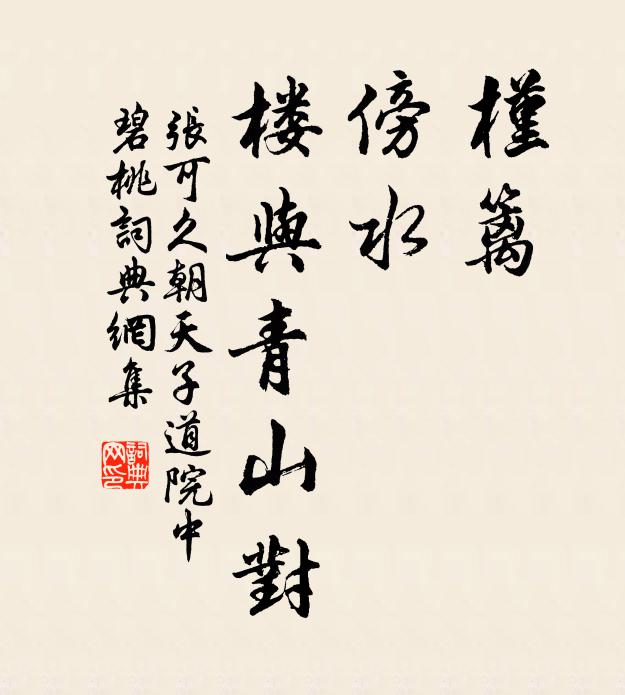 槿篱
傍水
楼與青山對
張可久朝天子道院中
碧桃詞典網集
詞典
网印